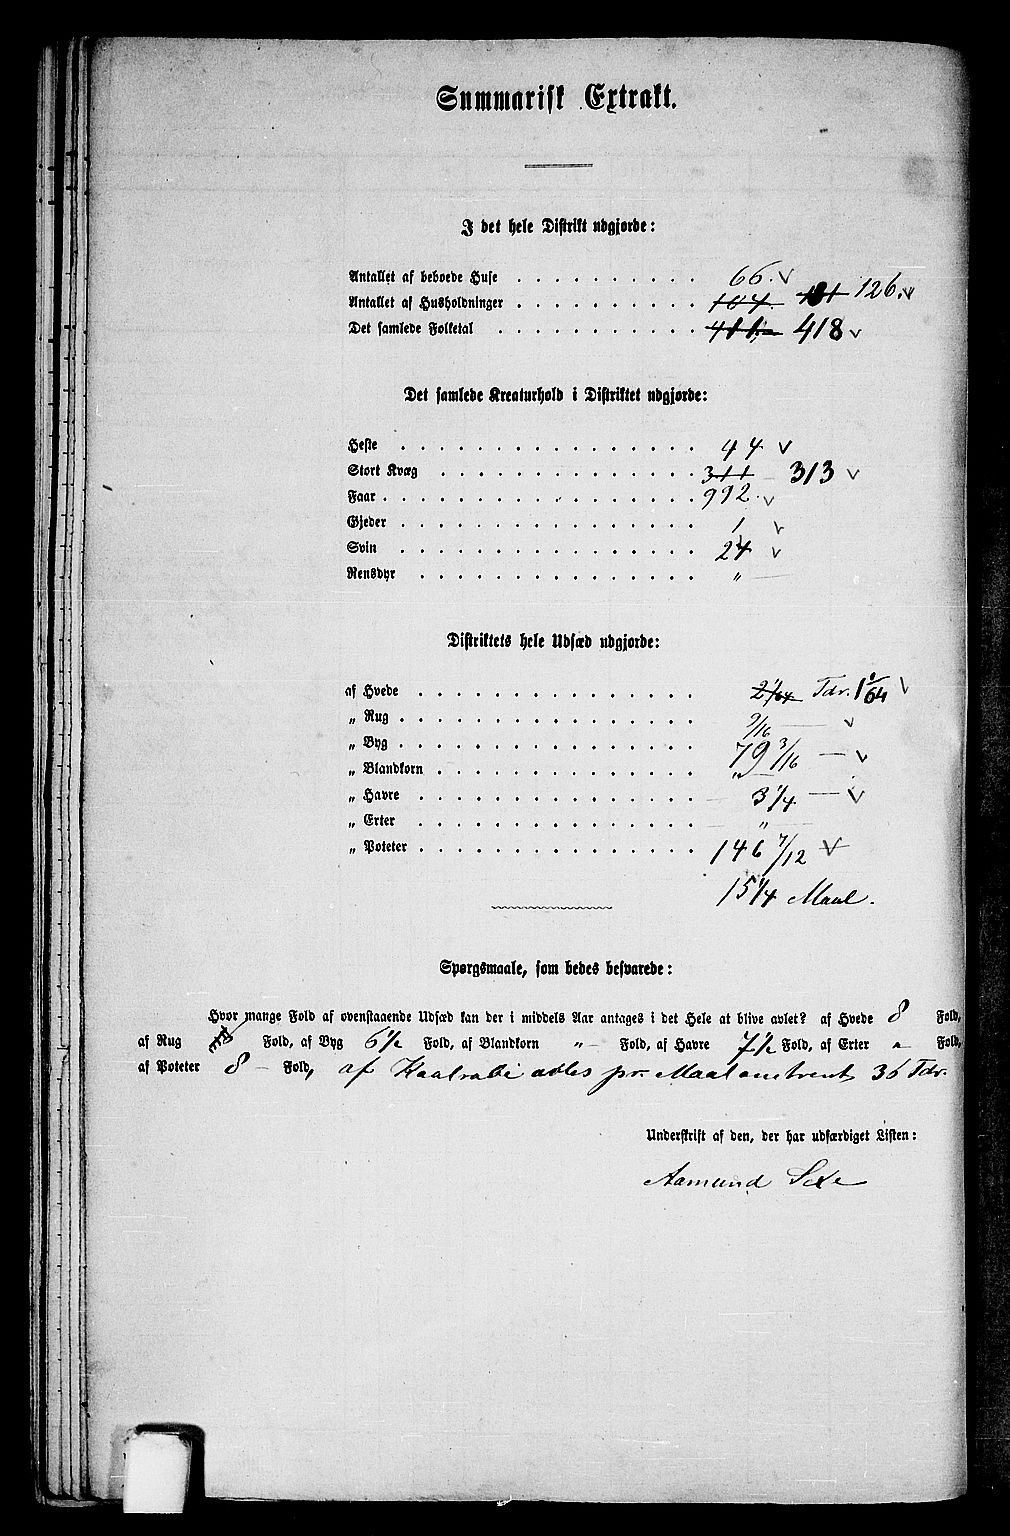 Summarisk Extrakt.
I det hele Distrikt udgjorde:
Antallet af beboede Huse . . . . . . . . . . 66. v
Antallet af Husholdninger . . . . . . . . . . 104. 131 126. v
Det samlede Folketal . . . . . . . . . . . 411. 418 v
Det samlede Kreaturhold i Distriktet udgjorde:
Heste . . . . . . . . . . . . . . . . 44 v
Stort Kvæg . . . . . . . . . . . . . . 311 313 v
Faar . . . . . . . . . . . . . . . . . 992. v
Gjeder . . . . . . . . . . . . . . . . 1 v
Svin . . . . . . . . . . . . . . . . 24 v
Rensdyr . . . . . . . . . . . . . . . „ —
Distriktets hele Udsæd udgjorde:
af Hvede . . . . . . . . . . . . . . . 2 1/64 Tdr. 1 1/64 v
„ Rug . . . . . . . . . . . . . . . . 9/16 — v
„ Byg . . . . . . . . . . . . . . . . 79 3/16 — v
„ Blandkorn . . . . . . . . . . . . . . „ —
„ Havre . . . . . . . . . . . . . . . 3 1/4 — v
„ Erter . . . . . . . . . . . . . . . „
„ Poteter . . . . . . . . . . . . . . . 146 7/12 v
15 1/4 Maal.
Spørgsmaale, som bedes besvarede:
Hvor mange Fold af ovenstaaende Udsæd kan der i middels Aar antages i det Hele at blive avlet? af Hvede 8 Fold,
af Rug Fold, af Byg 6 1/2 Fold, af Blandkorn „ — Fold, af Havre 7 1/2 Fold, af Erter „ Fold,
af Poteter 8 — Fold, af Kaalrabi avles pr. Maal omtrent 36 Tdr.
Underskrift af den, der har udfærdiget Listen:
Aamund Sexe